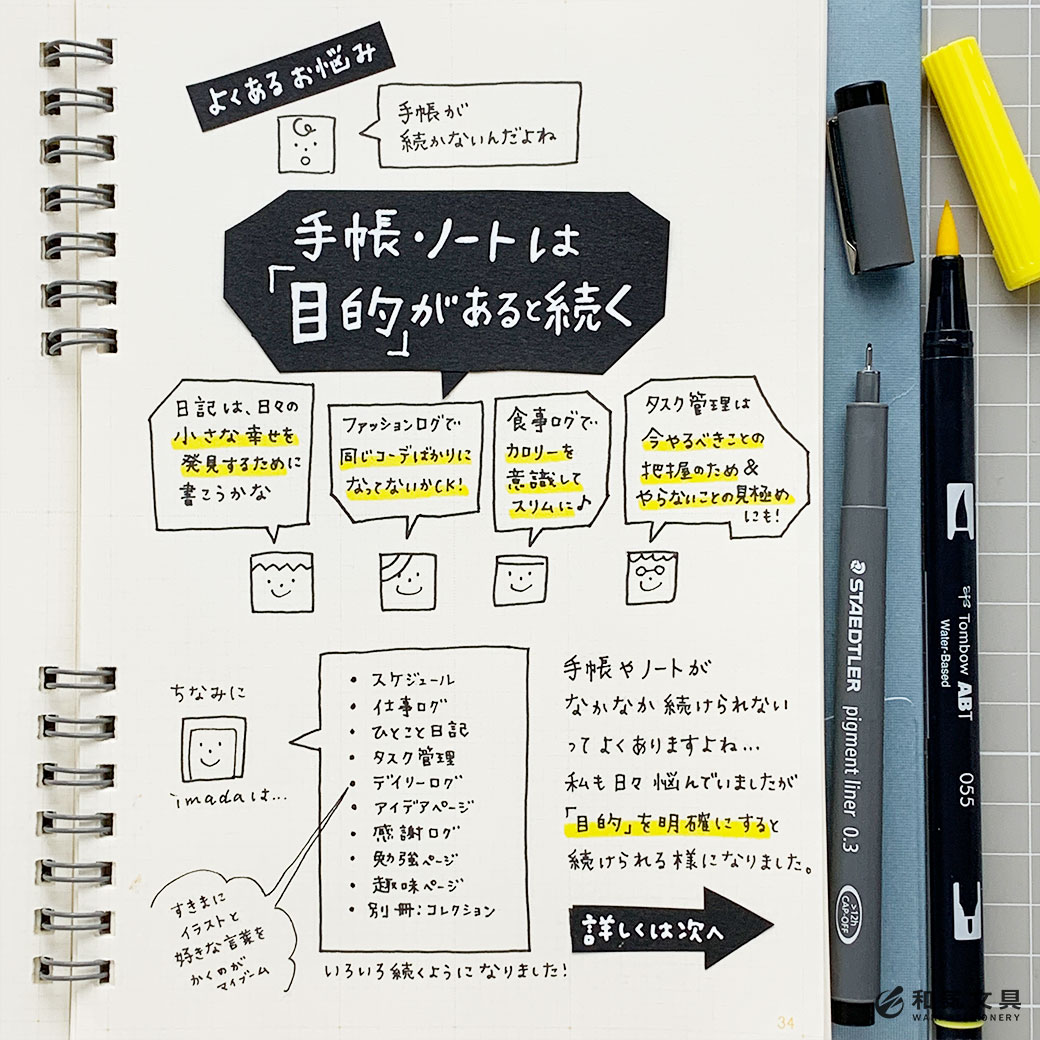 よくあるお悩み
手帳が
続かないんだよね
手帳・ノートは
「目的」があると続く
日記は、日々の
小さな幸せを
発見するために
書こうかな
ファッションログで
同じコーデばかりに
なってないかCK!
食事ログで
カロリーを
意識して
スリムに♪
タスク管理は
今やるべきことの
把握のため&
やらないことの見極め
にも!
ちなみに
imadaは...
• スケジュール
• 仕事ログ
• ひとこと日記
• タスク管理
• デイリーログ
• アイデアページ
• 感謝ログ
• 勉強ページ
• 趣味ページ
• 別冊:コレクション
すきまに
イラストと
好きな言葉を
かくのが
マイブーム
いろいろ続くようになりました!
手帳やノートが
なかなか続けられない
ってよくありますよね...
私も日々悩んでいましたが
「目的」を明確にすると
続けられる様になりました。
詳しくは次へ
34
STAEDTLER pigment liner 0.3
>12h
CAP-OFF
Tombow ABT
Water-Based
055
文具